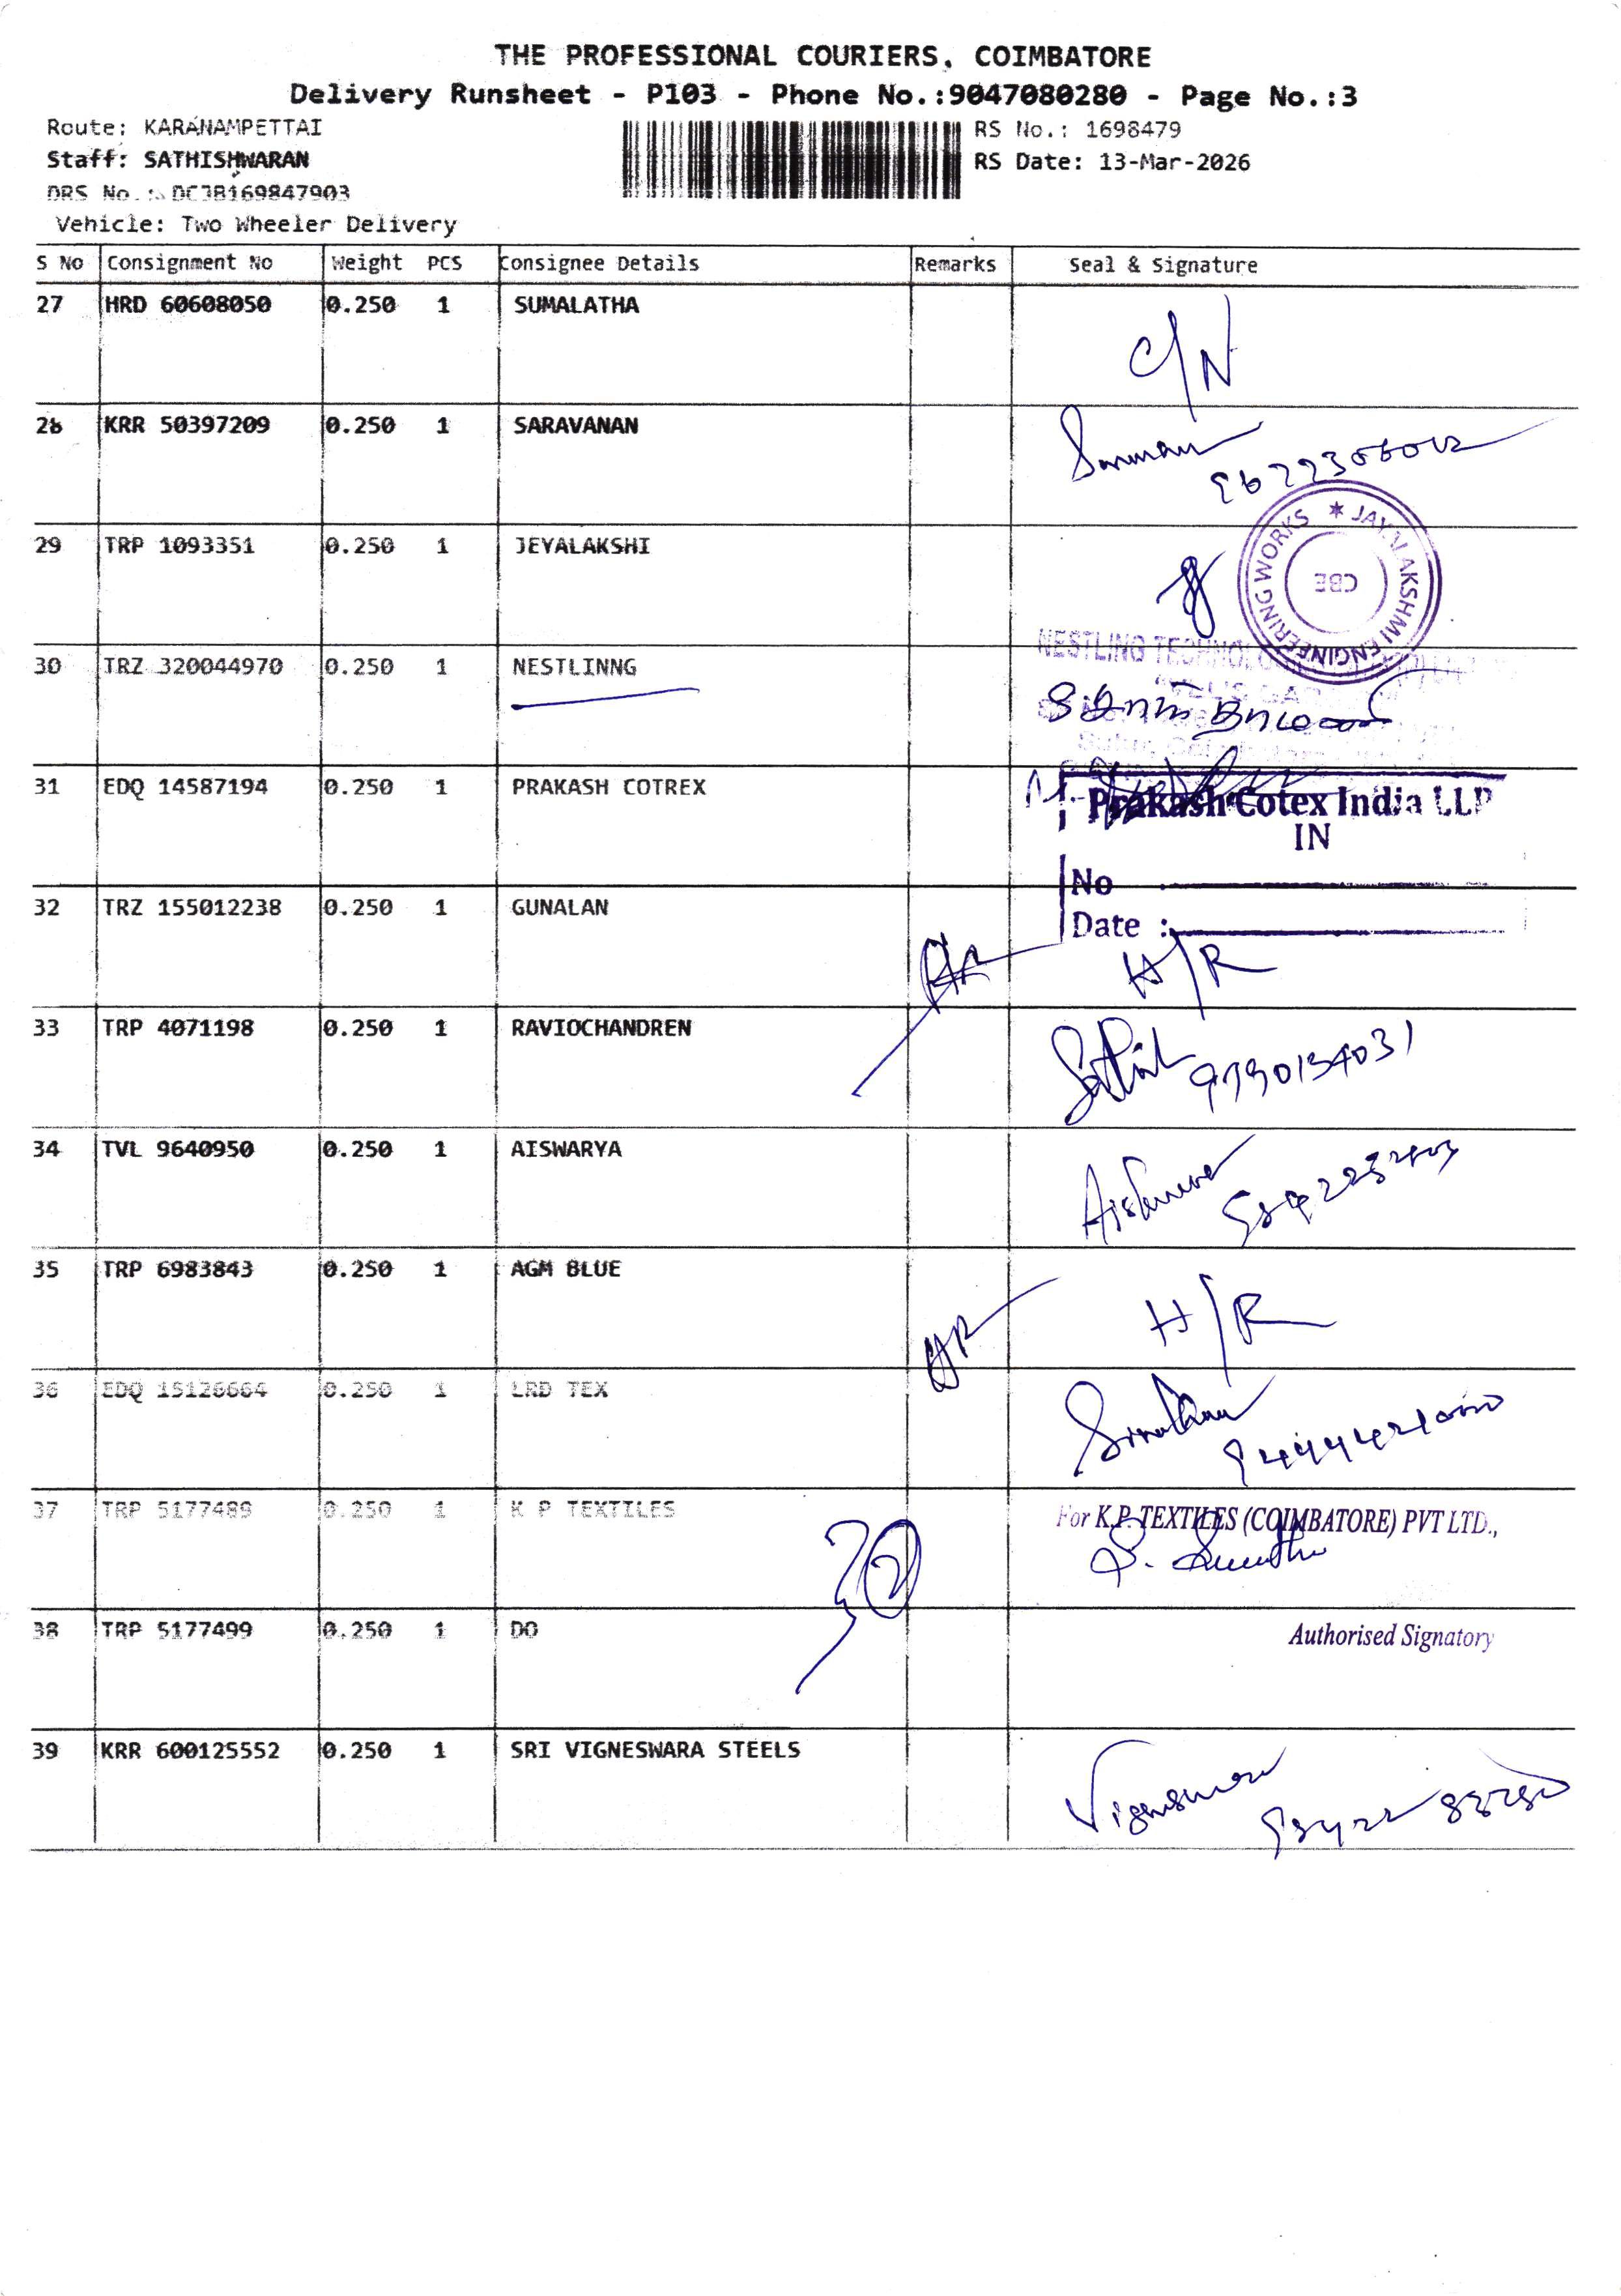 THE PROFESSIONAL COURIERS, COIMBATORE
Delivery Runsheet - P103 - Phone No.:9047080280 - Page No.:3
Route: KARANAMPETTAI
RS No.: 1698479
Staff: SATHISHWARAN
RS Date: 13-Mar-2026
DRS No.: DCJB169847903
Vehicle: Two Wheeler Delivery
S No Consignment No Weight PCS Consignee Details Remarks Seal & Signature
27 HRD 60608050 0.250 1 SUMALATHA C/N
28 KRR 50397209 0.250 1 SARAVANAN
29 TRP 1093351 0.250 1 JEYALAKSHI
JAYALAKSHMI ENGINEERING WORKS
CBE
NESTLING
30 TRZ 320044970 0.250 1 NESTLINNG
31 EDQ 14587194 0.250 1 PRAKASH COTREX
Prakash Cotex India LLP
IN
No
32 TRZ 155012238 0.250 1 GUNALAN
Date :
H/R
33 TRP 4071198 0.250 1 RAVIOCHANDREN
34 TVL 9640950 0.250 1 AISWARYA
35 TRP 6983843 0.250 1 AGM BLUE H/R
36 EDQ 15126664 0.250 1 LRD TEX
37 TRP 5177489 0.250 1 K P TEXTILES
For K.P. TEXTILES (COIMBATORE) PVT LTD.,
38 TRP 5177499 0.250 1 DO
Authorised Signatory
39 KRR 600125552 0.250 1 SRI VIGNESWARA STEELS